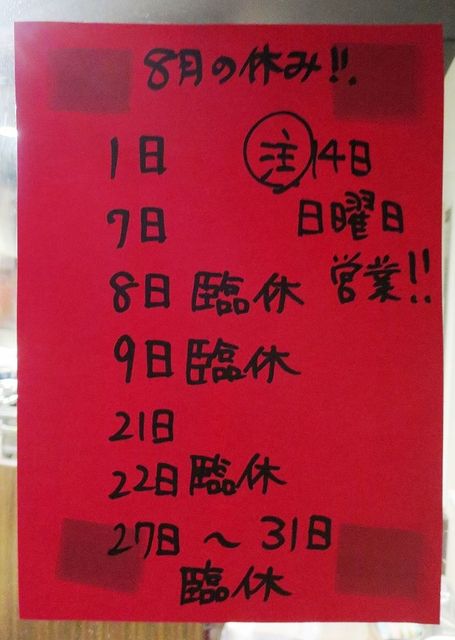 8月の休み!!
1日
7日
8日 臨休
9日 臨休
21日
22日 臨休
27日 〜 31日
臨休
注 14日
日曜日
営業!!